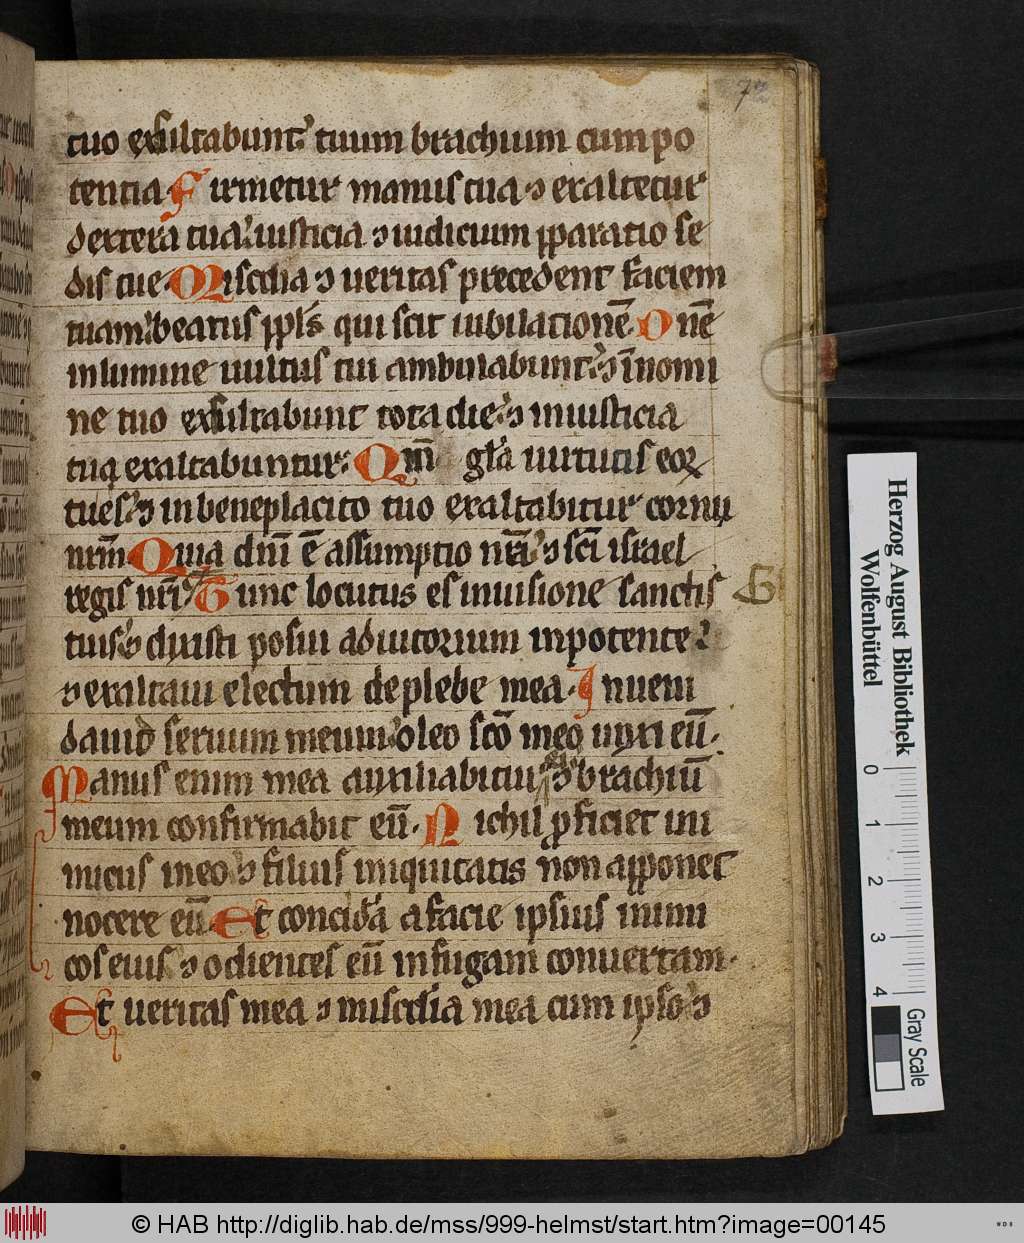 72
tuo exsultabunt: tuum brachium cum po
tentia. Firmetur manus tua ⁊ exaltetur
dextera tua: iusticia ⁊ iudicium p̄paratio se
dis tue. Miscd̄ia ⁊ ueritas precedent faciem
tuam: beatus ppl̄s qui scit iubilationē. Dn̄e
in lumine uultus tui ambulabunt: ⁊ ī nomi
ne tuo exsultabunt tota die: ⁊ in iusticia
tua exaltabuntur. Qm̄ gl̄a uirtutis eoꝝ
tu es: ⁊ in beneplacito tuo exaltabitur cornu
nrm̄. Quia dn̄i ē assumptio nr̄a: ⁊ sc̄i israel
regis nr̄i. Tunc locutus es in uisione sanctis
tuis: ⁊ dixisti posui adiutorium in potente:
⁊ exaltaui electum de plebe mea. Inueni
dauid seruum meum: oleo sc̄o meo unxi eū.
Manus enim mea auxiliabitur ei: ⁊ brachiū
meum confirmabit eū. Nichil ꝓficiet ini
micus in eo: ⁊ filius iniquitatis non apponet
nocere eū. Et concidā a facie ipsius inimi
cos eius: ⁊ odientes eū in fugam conuertam.
Et ueritas mea ⁊ miscd̄ia mea cum ipso: ⁊
Herzog August Bibliothek
Wolfenbüttel
0 1 2 3 4
Gray Scale
© HAB http://diglib.hab.de/mss/999-helmst/start.htm?image=00145
WDB